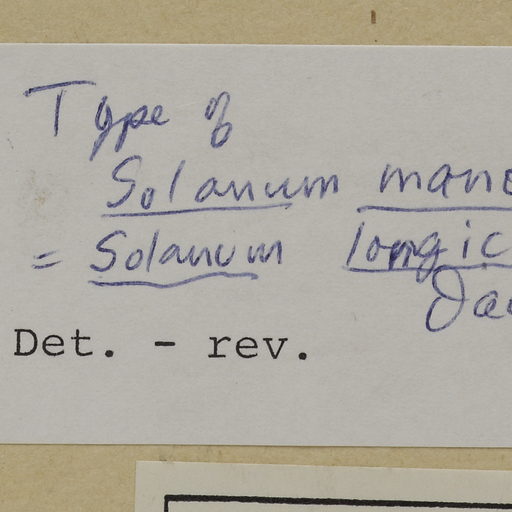 Type of
Solanum mano
= Solanum longic
Det. - rev.